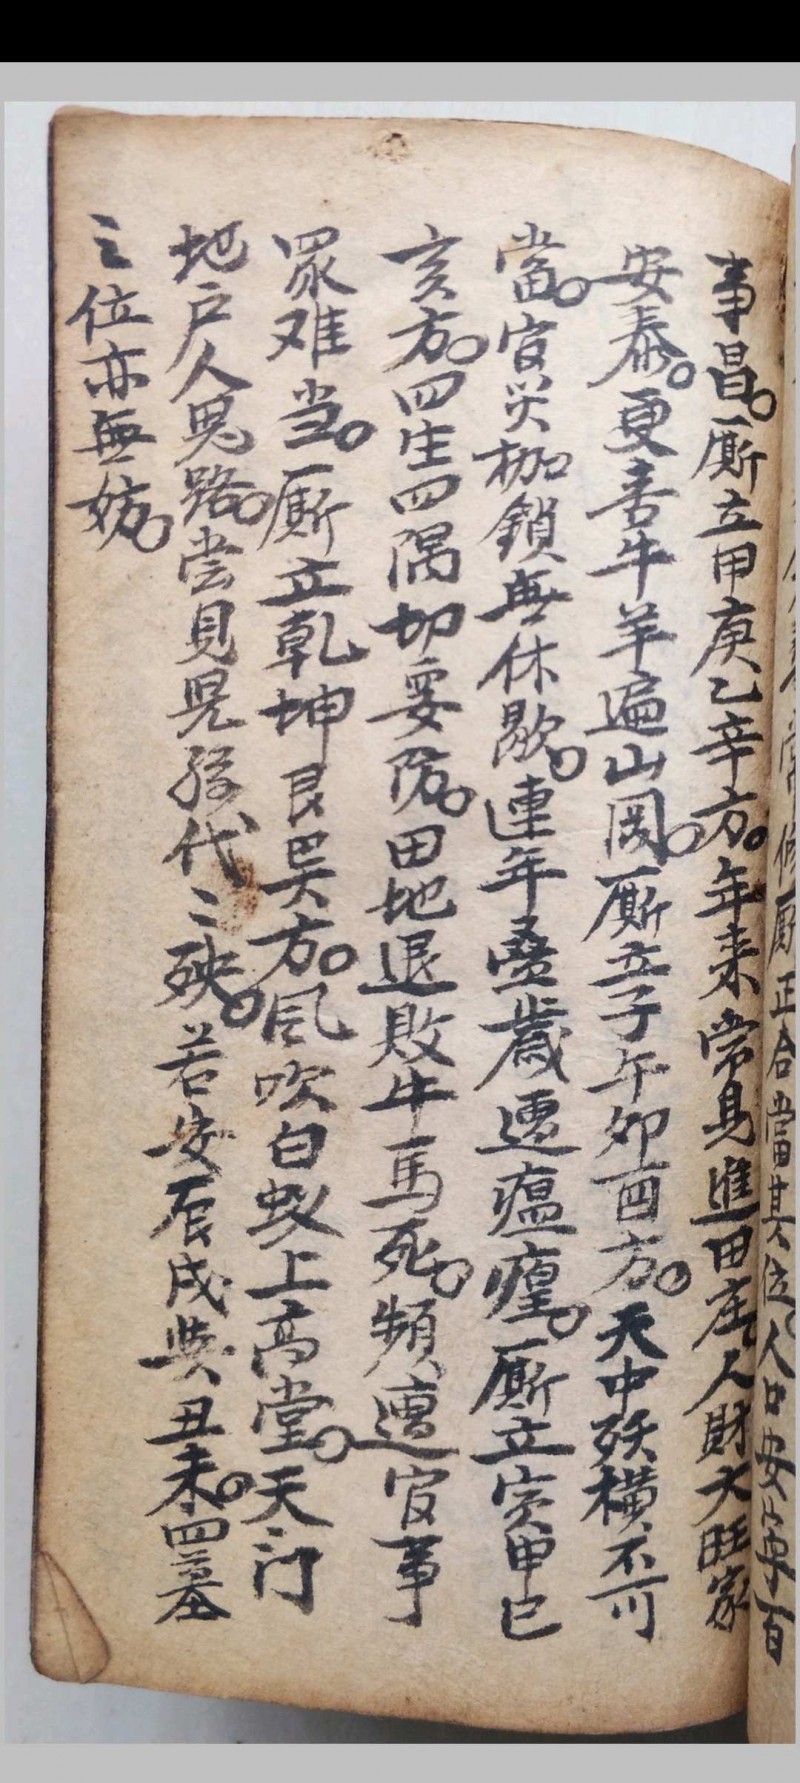 修厨正合當其位。人口安寧百
事昌。厮立甲庚乙辛方。年来常見進田庄。人財大旺家
安泰。更喜牛羊遍山岡。厮立子午卯酉方。天中殀横不可
當。官災枷鎖無休歇。連年叠歲遭瘟瘟。厮立寅申巳
亥方。四生四隅切要防。田地退敗牛馬死。頻遭官事
眾难当。厮立乾坤艮巽方。風吹白蚁上高堂。天门
地户人鬼路。尝見児孫代〻殃。若安辰戌与丑未。四墓
之位亦無妨。